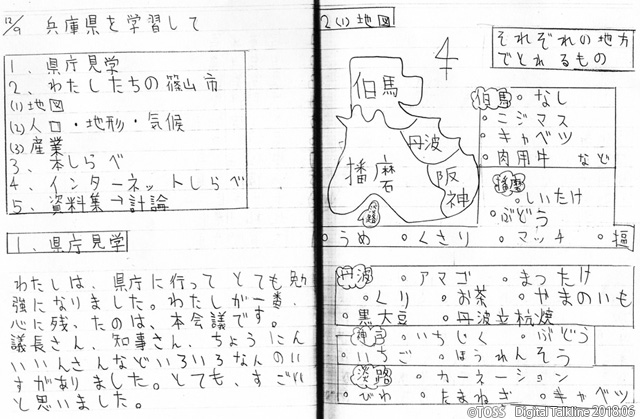 12/9 兵庫県を学習して
1、県庁見学
2、わたしたちの篠山市
(1)地図
(2)人口・地形・気候
(3)産業
3、本しらべ
4、インターネットしらべ
5、資料集→討論
1、県庁見学
わたしは、県庁に行ってとても勉
強になりました。わたしが一番、
心に残ったのは、本会議です。
議長さん、知事さん、ちょうにん
いいんさんなどいろいろなんのい
すがありました。とても、すごい
と思いました。
2(1)地図
4
それぞれの地方
でとれるもの
但馬
丹波
播磨
阪神
淡路
但馬・なし
・ニジマス
・キャベツ
・肉用牛 など
播磨
・しいたけ
・ぶどう
・うめ ・くさり ・マッチ ・塩
丹波 ・アマゴ ・まつたけ
・くり ・お茶 ・やまのいも
・黒大豆 ・丹波立杭焼
神戸 ・いちじく ・ぶどう
・いちご ・ほうれんそう
淡路 ・カーネーション
・びわ ・たまねぎ ・キャベツ
©TOSS Digital Talkline 2018.05